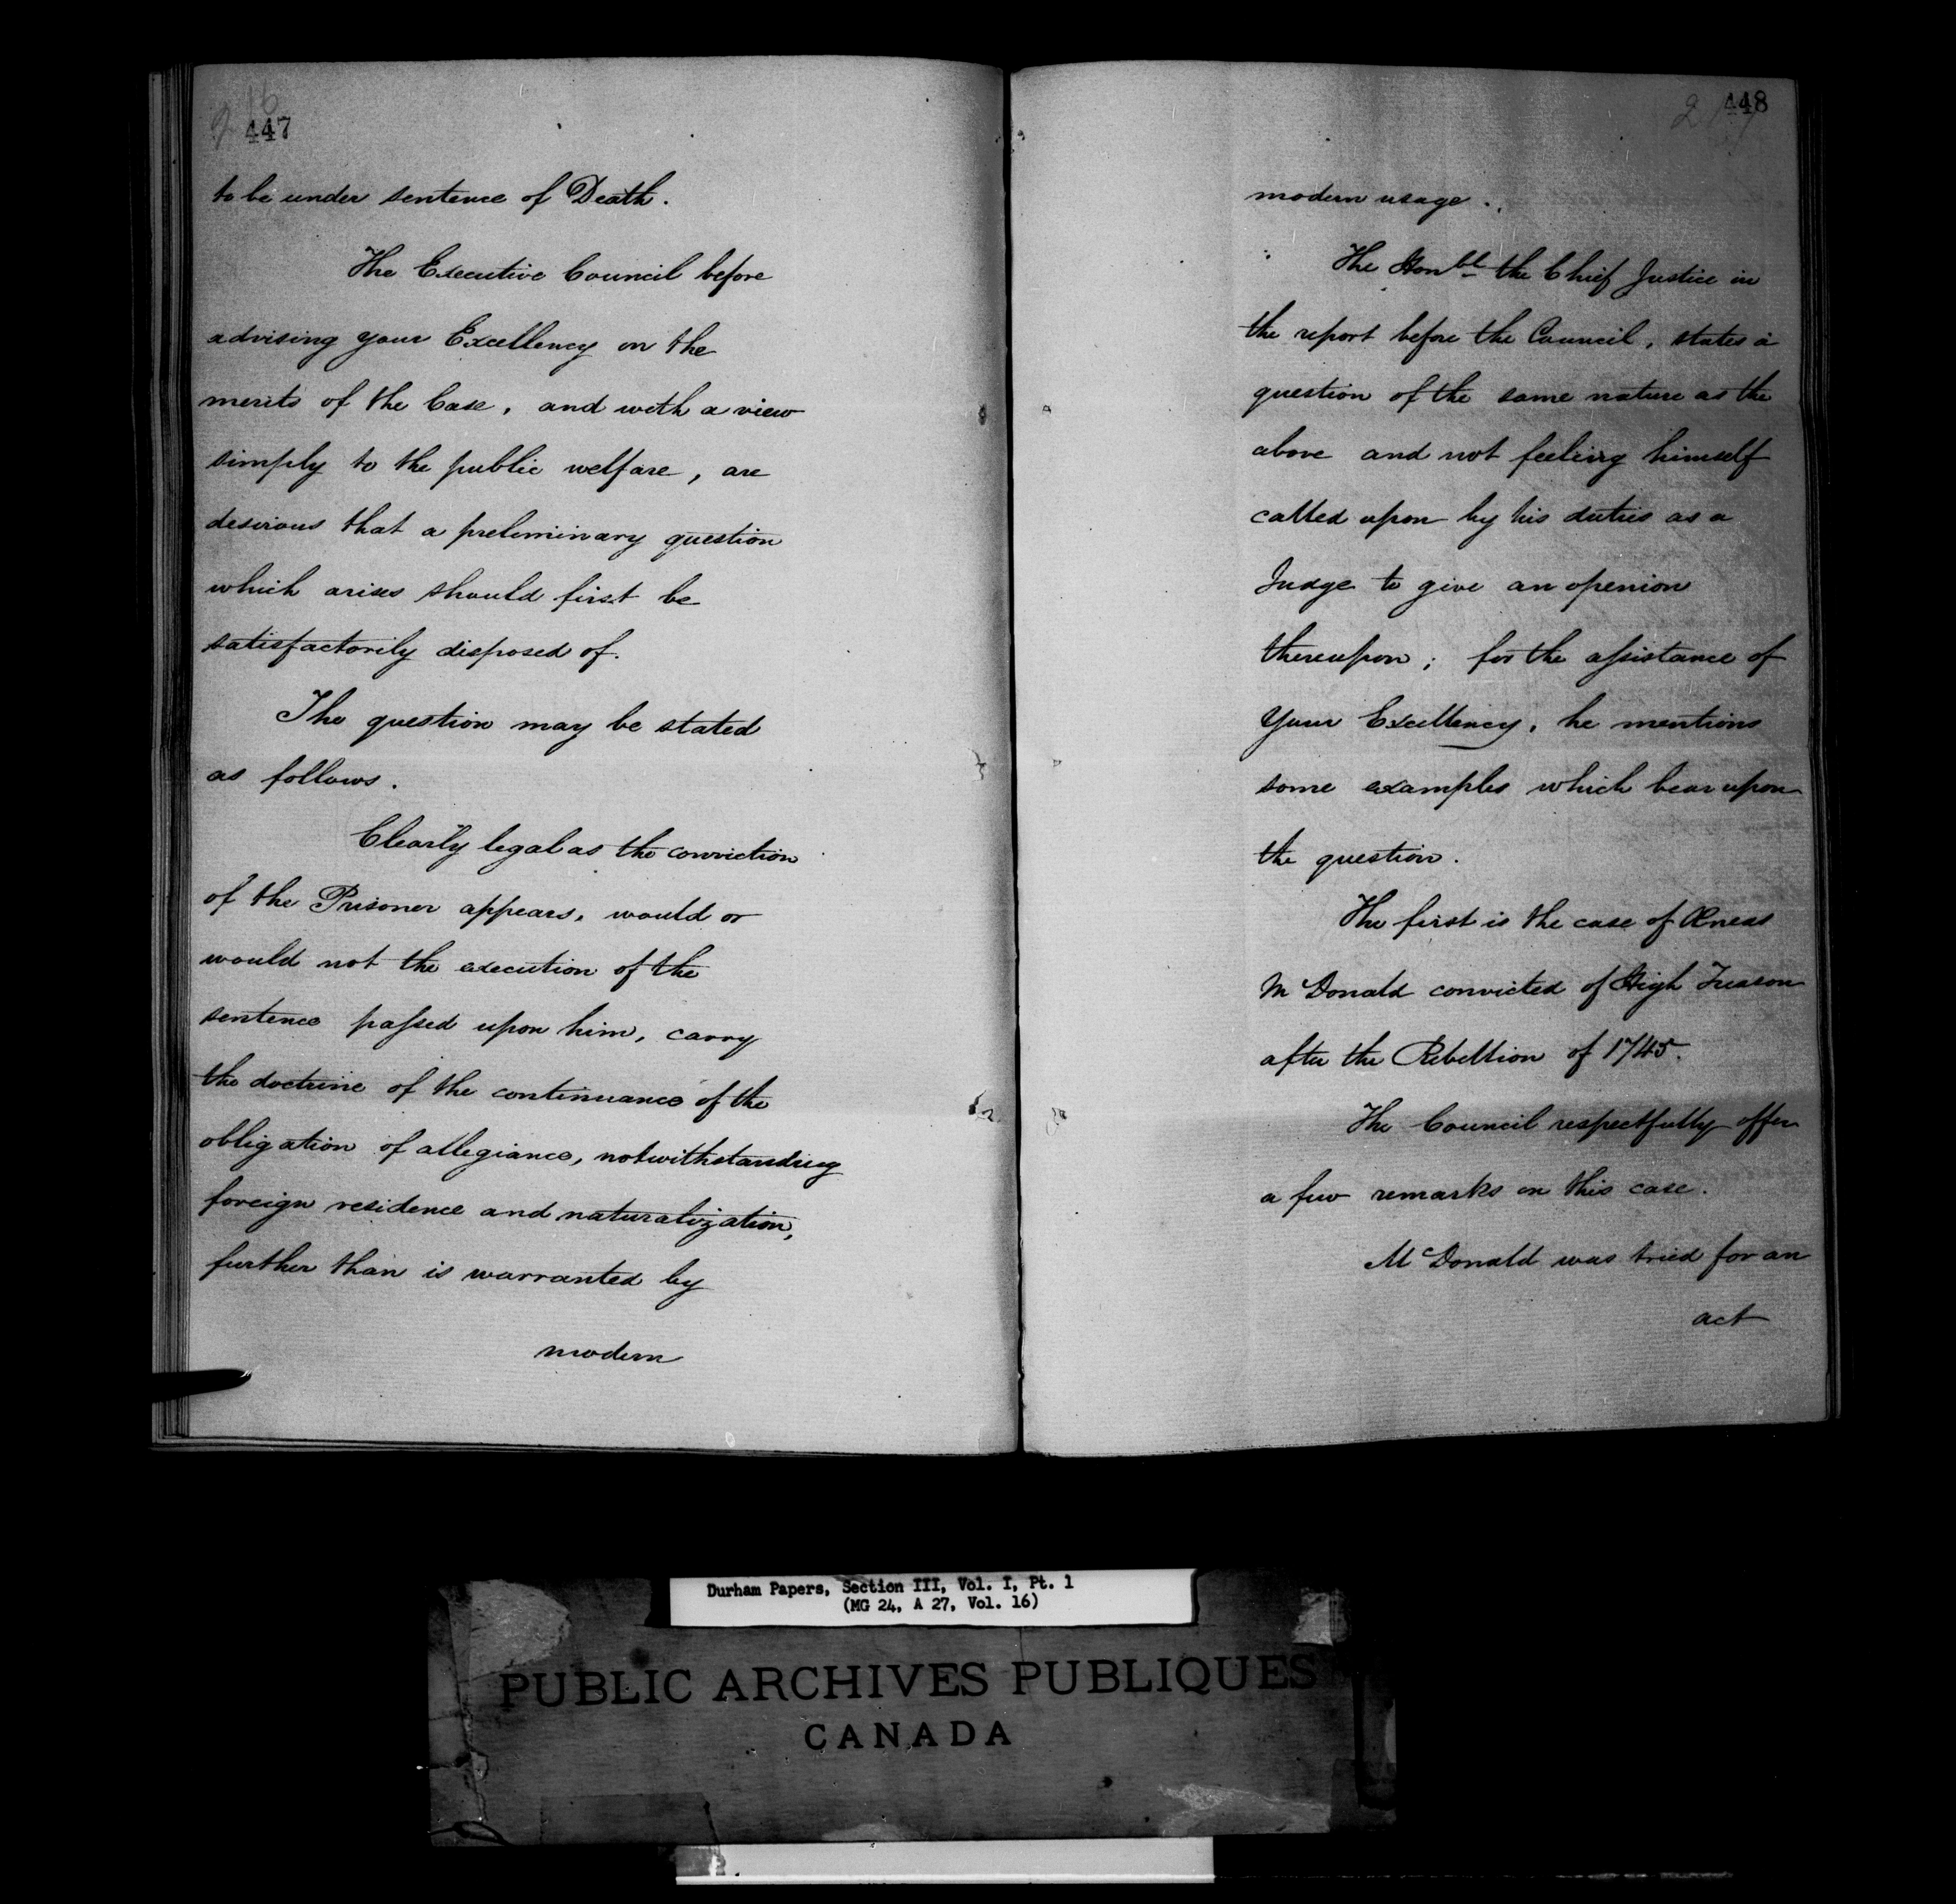 447
to be under sentence of Death.
The Executive Council before
advising your Excellency on the
merits of the Case, and with a view
simply to the public welfare, are
desirous that a preliminary question
which arises should first be
satisfactorily disposed of.
The question may be stated
as follows.
Clearly legal as the conviction
of the Prisoner appears, would or
would not the execution of the
sentence passed upon him, carry
the doctrine of the continuance of the
obligation of allegiance, notwithstanding
foreign residence and naturalization,
further than is warranted by
modern
448
modern usage.
The Honble the Chief Justice in
the report before the Council, states a
question of the same nature as the
above and not feeling himself
called upon by his duties as a
Judge to give an openion
thereupon; for the assistance of
Your Excellency, he mentions
some examples which bear upon
the question.
The first is the case of Æneas
McDonald convicted of High Treason
after the Rebellion of 1745.
The Council respectfully offer
a few remarks on this case.
McDonald was tried for an
act
Durham Papers, Section III, Vol. I, Pt. 1
(MG 24, A 27, Vol. 16)
PUBLIC ARCHIVES PUBLIQUES
CANADA